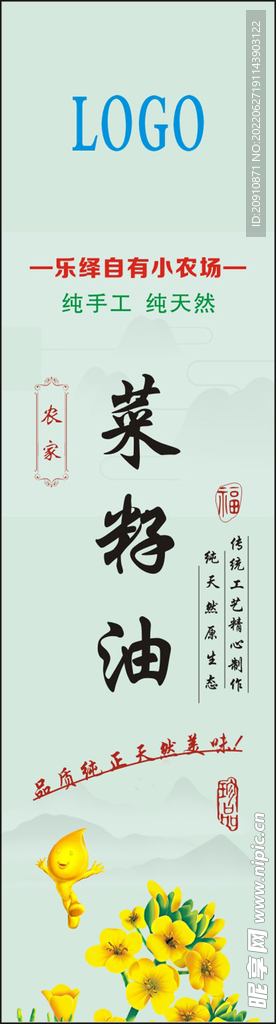 LOGO
ID:20910871 NO:20220627191143903122
—乐绎自有小农场—
纯手工 纯天然
农家
菜籽油
福
传统工艺精心制作
纯天然原生态
品质纯正天然美味!
珍品
昵享网 www.nipic.cn